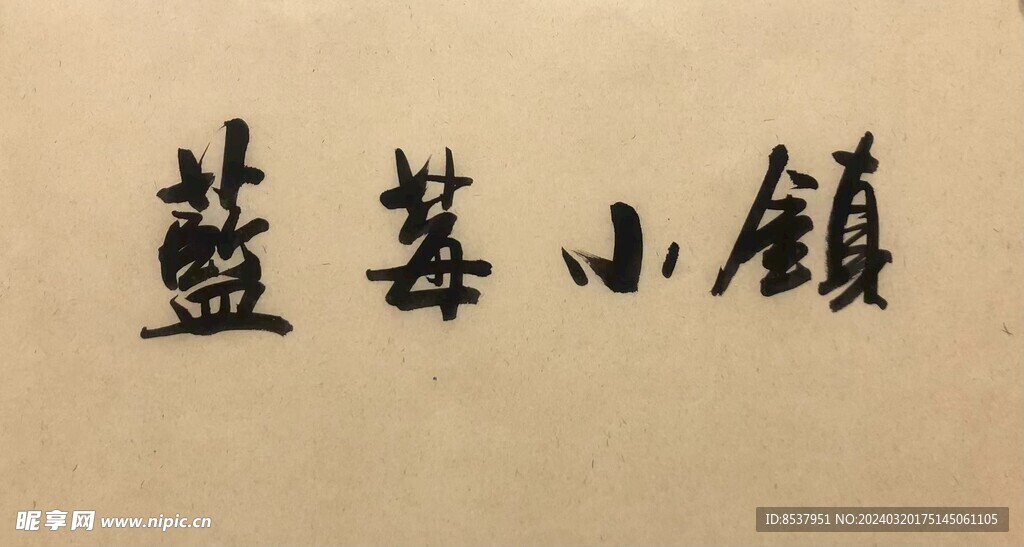 藍莓小鎮
昵享网 www.nipic.cn
ID:8537951 NO:20240320175145061105